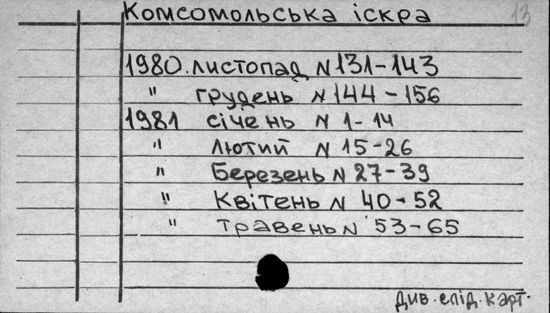 Комсомольська іскра 13
1980. листопад N 131-143
" грудень N 144-156
1981 січень N 1-14
" лютий N 15-26
" Березень N 27-39
" Квітень N 40-52
" травень N 53-65
див. слід. карт.